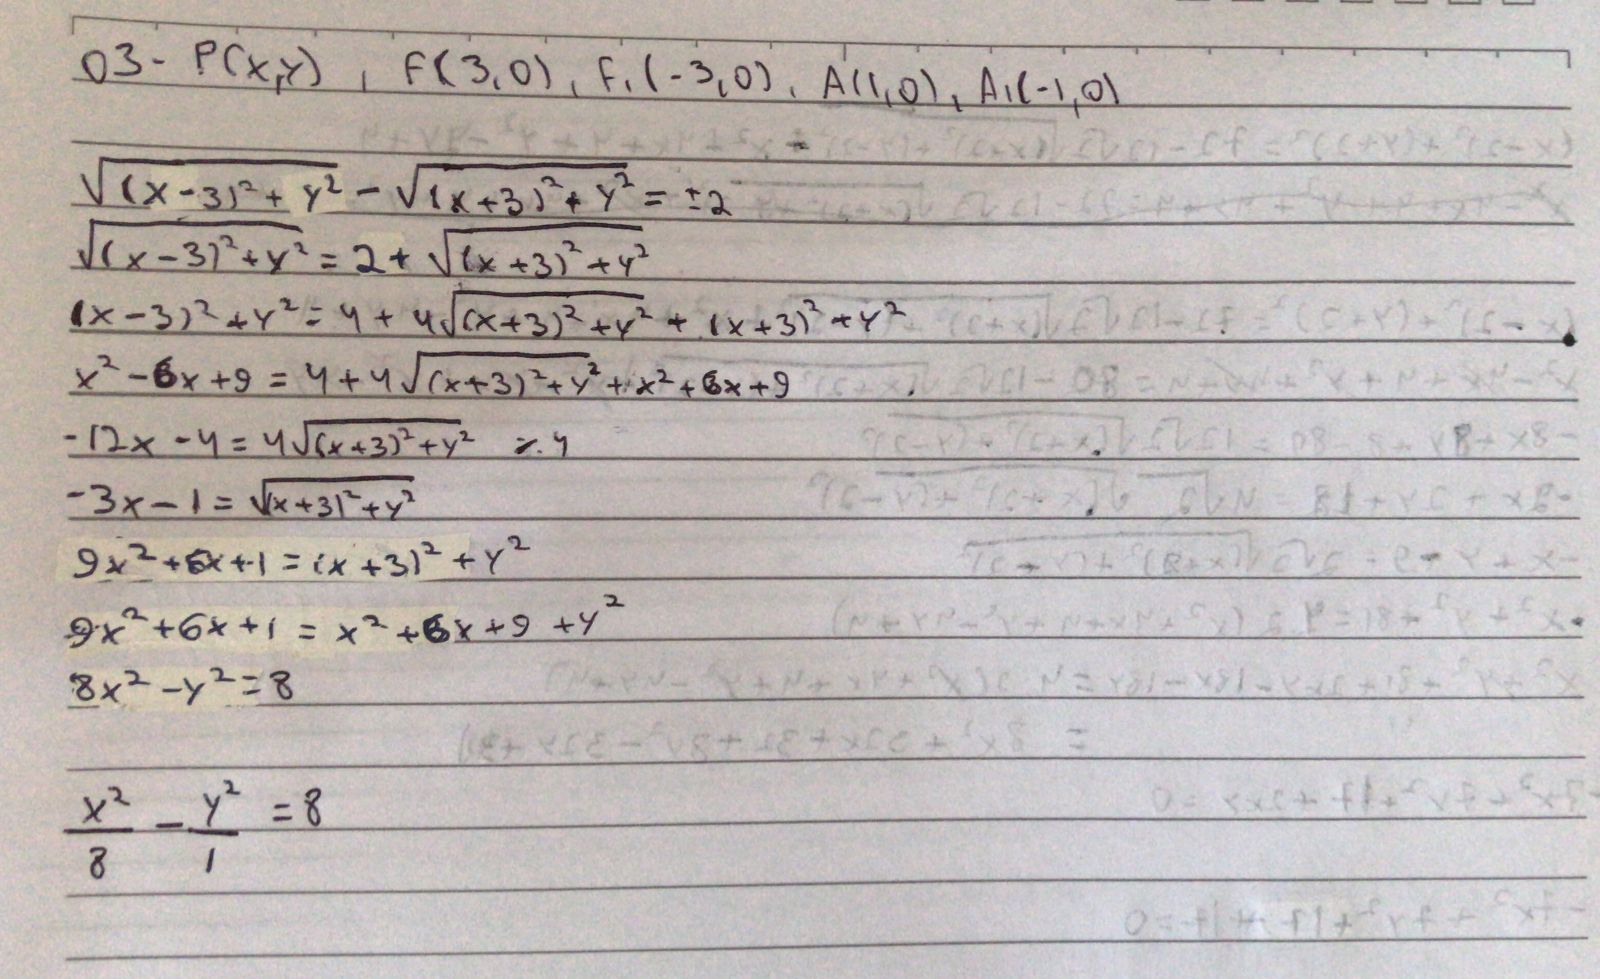 03- P(x,y) , F(3,0), F₁(-3,0), A(1,0), A₁(-1,0)
√((x-3)²+y²) - √((x+3)²+y²) = ±2
√((x-3)²+y²) = 2+ √((x+3)²+y²)
(x-3)²+y² = 4 + 4√((x+3)²+y²) + (x+3)²+y²
x²-6x+9 = 4+4√((x+3)²+y²) + x²+6x+9
-12x-4 = 4√((x+3)²+y²) ÷4
-3x-1 = √(x+3)²+y²
9x²+6x+1 = (x+3)²+y²
9x²+6x+1 = x²+6x+9 +y²
8x²-y²=8
x²/8 - y²/1 = 8